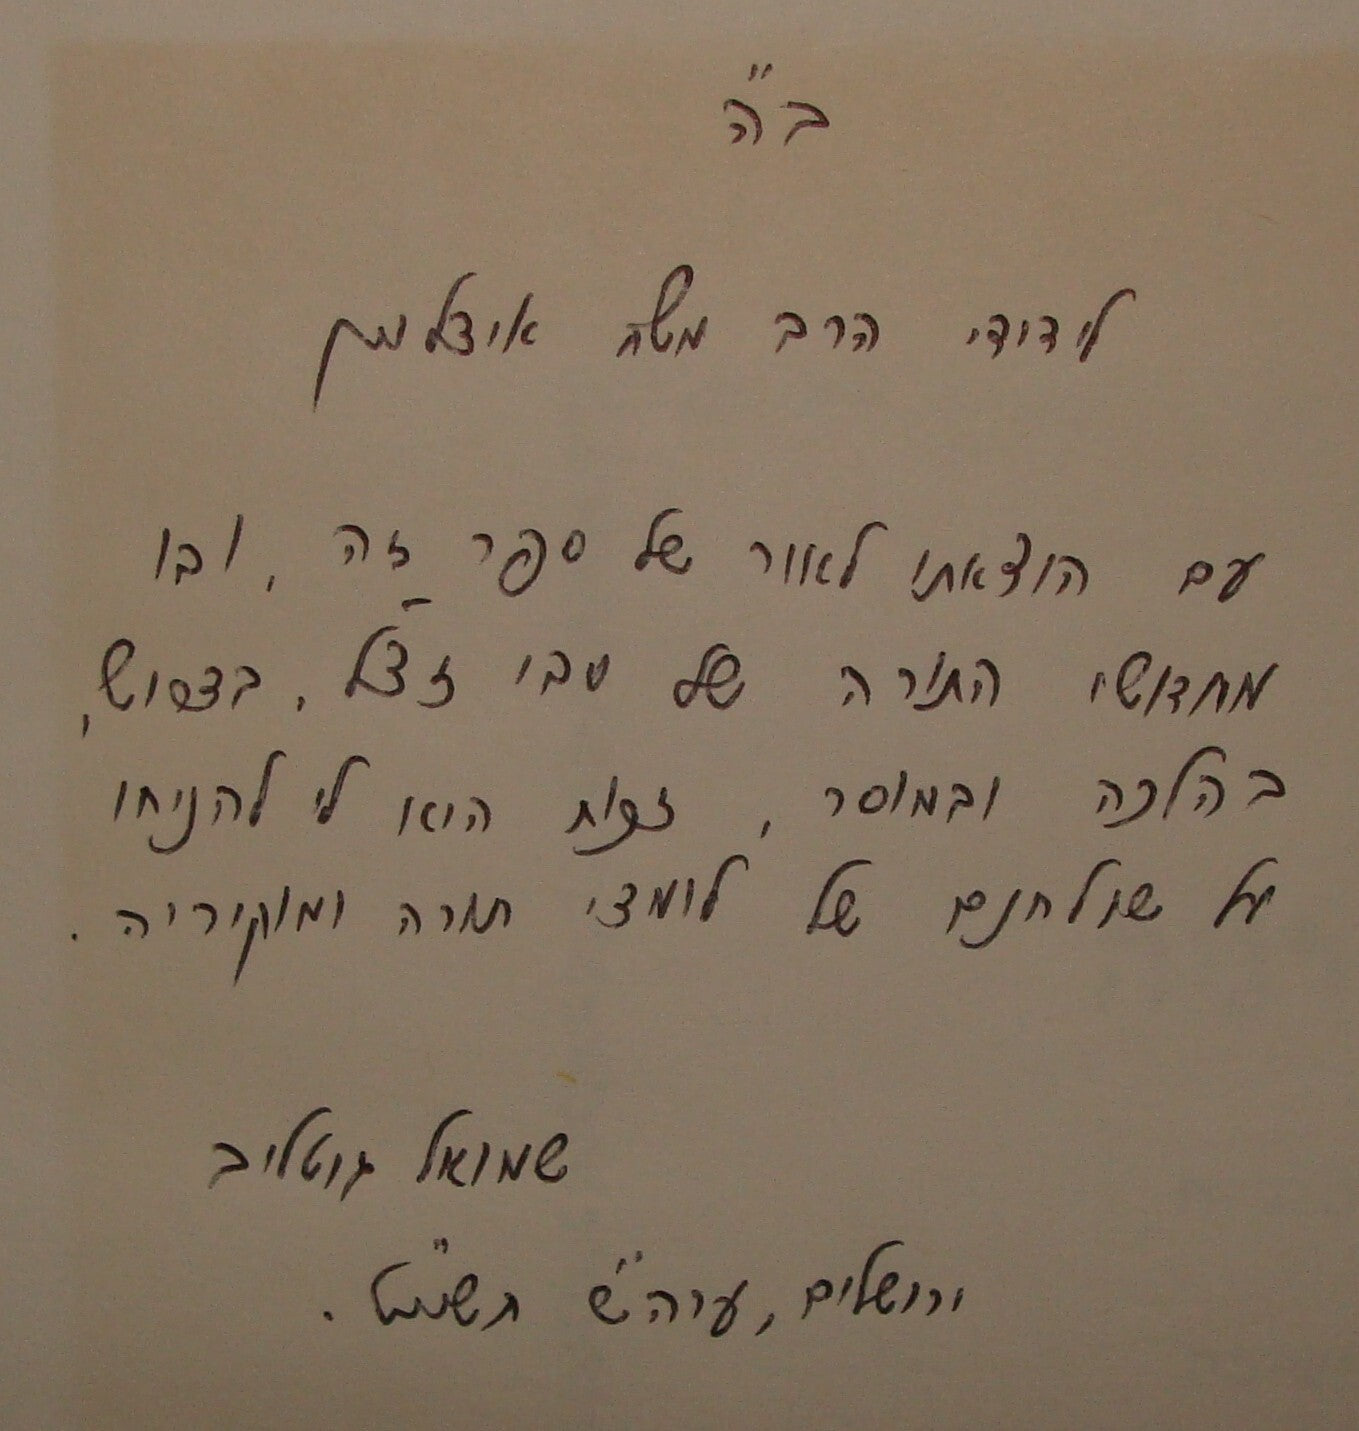 ב"ה
לידידי הרב משה
עם הוצאתו לאור של ספר זה, ובו
מחדושי התורה של סבי זצ"ל,
בהלכה ובמוסר, זכות היא לי להניחו
על שולחנם של לומדי תורה ומוקיריה.
שמואל גוטליב
ירושלים, ערה"ש